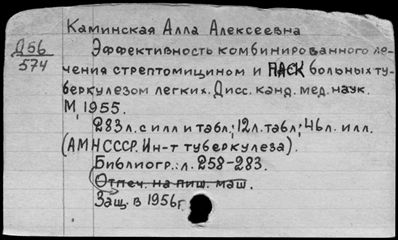 Каминская Алла Алексеевна
Д56
574
Эффективность комбинированного ле-
чения стрептомицином и ПАСК больных ту-
беркулезом легких. Дисс. канд. мед. наук.
М, 1955.
283 л. с илл и табл; 12л. табл; 46л. илл.
(АМН СССР. Ин-т туберкулеза).
Библиогр.: л. 258-283.
(Отпеч. на пиш. маш.
Защ. в 1956г